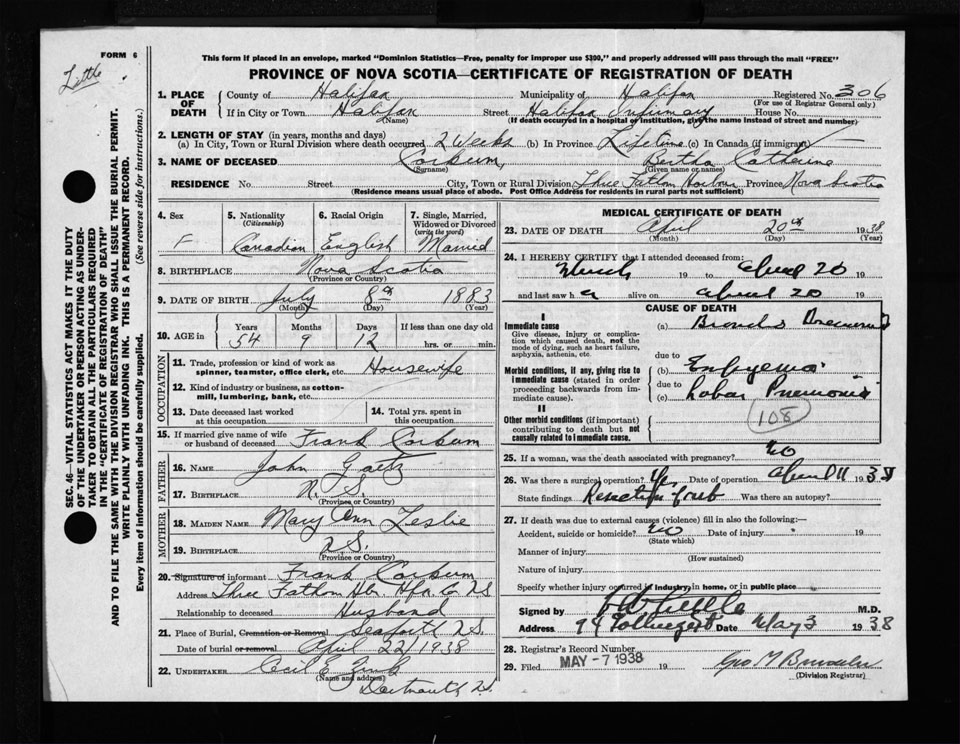 FORM 6
Little
This form if placed in an envelope, marked "Dominion Statistics—Free, penalty for improper use $300," and properly addressed will pass through the mail "FREE"
PROVINCE OF NOVA SCOTIA—CERTIFICATE OF REGISTRATION OF DEATH
SEC. 46—VITAL STATISTICS ACT MAKES IT THE DUTY
OF THE UNDERTAKER OR PERSON ACTING AS UNDER-
TAKER TO OBTAIN ALL THE PARTICULARS REQUIRED
IN THE "CERTIFICATE OF REGISTRATION OF DEATH"
AND TO FILE THE SAME WITH THE DIVISION REGISTRAR WHO SHALL ISSUE THE BURIAL PERMIT.
WRITE PLAINLY WITH UNFADING INK. THIS IS A PERMANENT RECORD.
Every item of information should be carefully supplied. (See reverse side for instructions.)
1. PLACE OF DEATH County of Halifax Municipality of Halifax Registered No. 306
(For use of Registrar General only)
If in City or Town Halifax Street Halifax Infirmary House No.
(Name) (If death occurred in a hospital or institution, give the name instead of street and number)
2. LENGTH OF STAY (in years, months and days)
(a) In City, Town or Rural Division where death occurred 2 Weeks (b) In Province Lifetime (c) In Canada (if immigrant)
3. NAME OF DECEASED Corkum, Bertha Catherine
(Surname) (Given name or names)
RESIDENCE No. Street City, Town or Rural Division Three Fathom Harbour Province Nova Scotia
(Residence means usual place of abode. Post Office Address for residents in rural parts not sufficient)
4. Sex F
5. Nationality (Citizenship) Canadian
6. Racial Origin English
7. Single, Married, Widowed or Divorced (write the word) Married
8. BIRTHPLACE Nova Scotia
(Province or Country)
9. DATE OF BIRTH July 8th 1883
(Month) (Day) (Year)
10. AGE in Years Months Days If less than one day old
54 9 12 hrs. or min.
OCCUPATION
11. Trade, profession or kind of work as spinner, teamster, office clerk, etc. Housewife
12. Kind of industry or business, as cotton-mill, lumbering, bank, etc.
13. Date deceased last worked at this occupation
14. Total yrs. spent in this occupation
15. If married give name of wife or husband of deceased Frank Corkum
FATHER
16. NAME John Gaetz
17. BIRTHPLACE N. S.
(Province or Country)
MOTHER
18. MAIDEN NAME Mary Ann Leslie
19. BIRTHPLACE N.S.
(Province or Country)
20. Signature of informant Frank Corkum
Address Three Fathom Hbr. Hfx. Co. N.S
Relationship to deceased Husband
21. Place of Burial, Cremation or Removal Seaforth N.S.
Date of burial or removal April 22/1938
22. UNDERTAKER Cecil E. Zink
(Name and address)
Dartmouth N.S.
MEDICAL CERTIFICATE OF DEATH
23. DATE OF DEATH April 20th 1938
(Month) (Day) (Year)
24. I HEREBY CERTIFY that I attended deceased from:
March 19 to April 20 19
and last saw h er alive on April 20 19
CAUSE OF DEATH
I
Immediate cause
Give disease, injury or complication which caused death, not the mode of dying, such as heart failure, asphyxia, asthenia, etc.
(a) Broncho Pneumonia
due to
Morbid conditions, if any, giving rise to immediate cause (stated in order proceeding backwards from immediate).
(b) Empyema
due to
(c) Lobar Pneumonia
108
II
Other morbid conditions (if important) contributing to death but not causally related to immediate cause.
25. If a woman, was the death associated with pregnancy? No
26. Was there a surgical operation? Yes Date of operation April 11 1938
State findings Resection of rib Was there an autopsy?
27. If death was due to external causes (violence) fill in also the following:—
Accident, suicide or homicide? No Date of injury 19
(State which)
Manner of injury
(How sustained)
Nature of injury
Specify whether injury occurred in industry, in home, or in public place
Signed by M.D.
Address 94 Date May 3 1938
28. Registrar's Record Number
29. Filed MAY -7 1938 19
(Division Registrar)